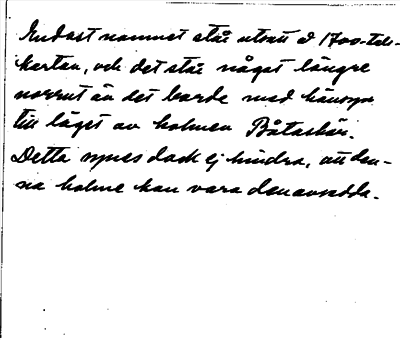 Endast namnet står utsatt å 1700-tals-
kartan, och det står något längre
norrut än det borde med hänsyn
till läget av holmen Båtaskär.
Detta synes dock ej hindra, att den-
na holme kan vara den avsedda.